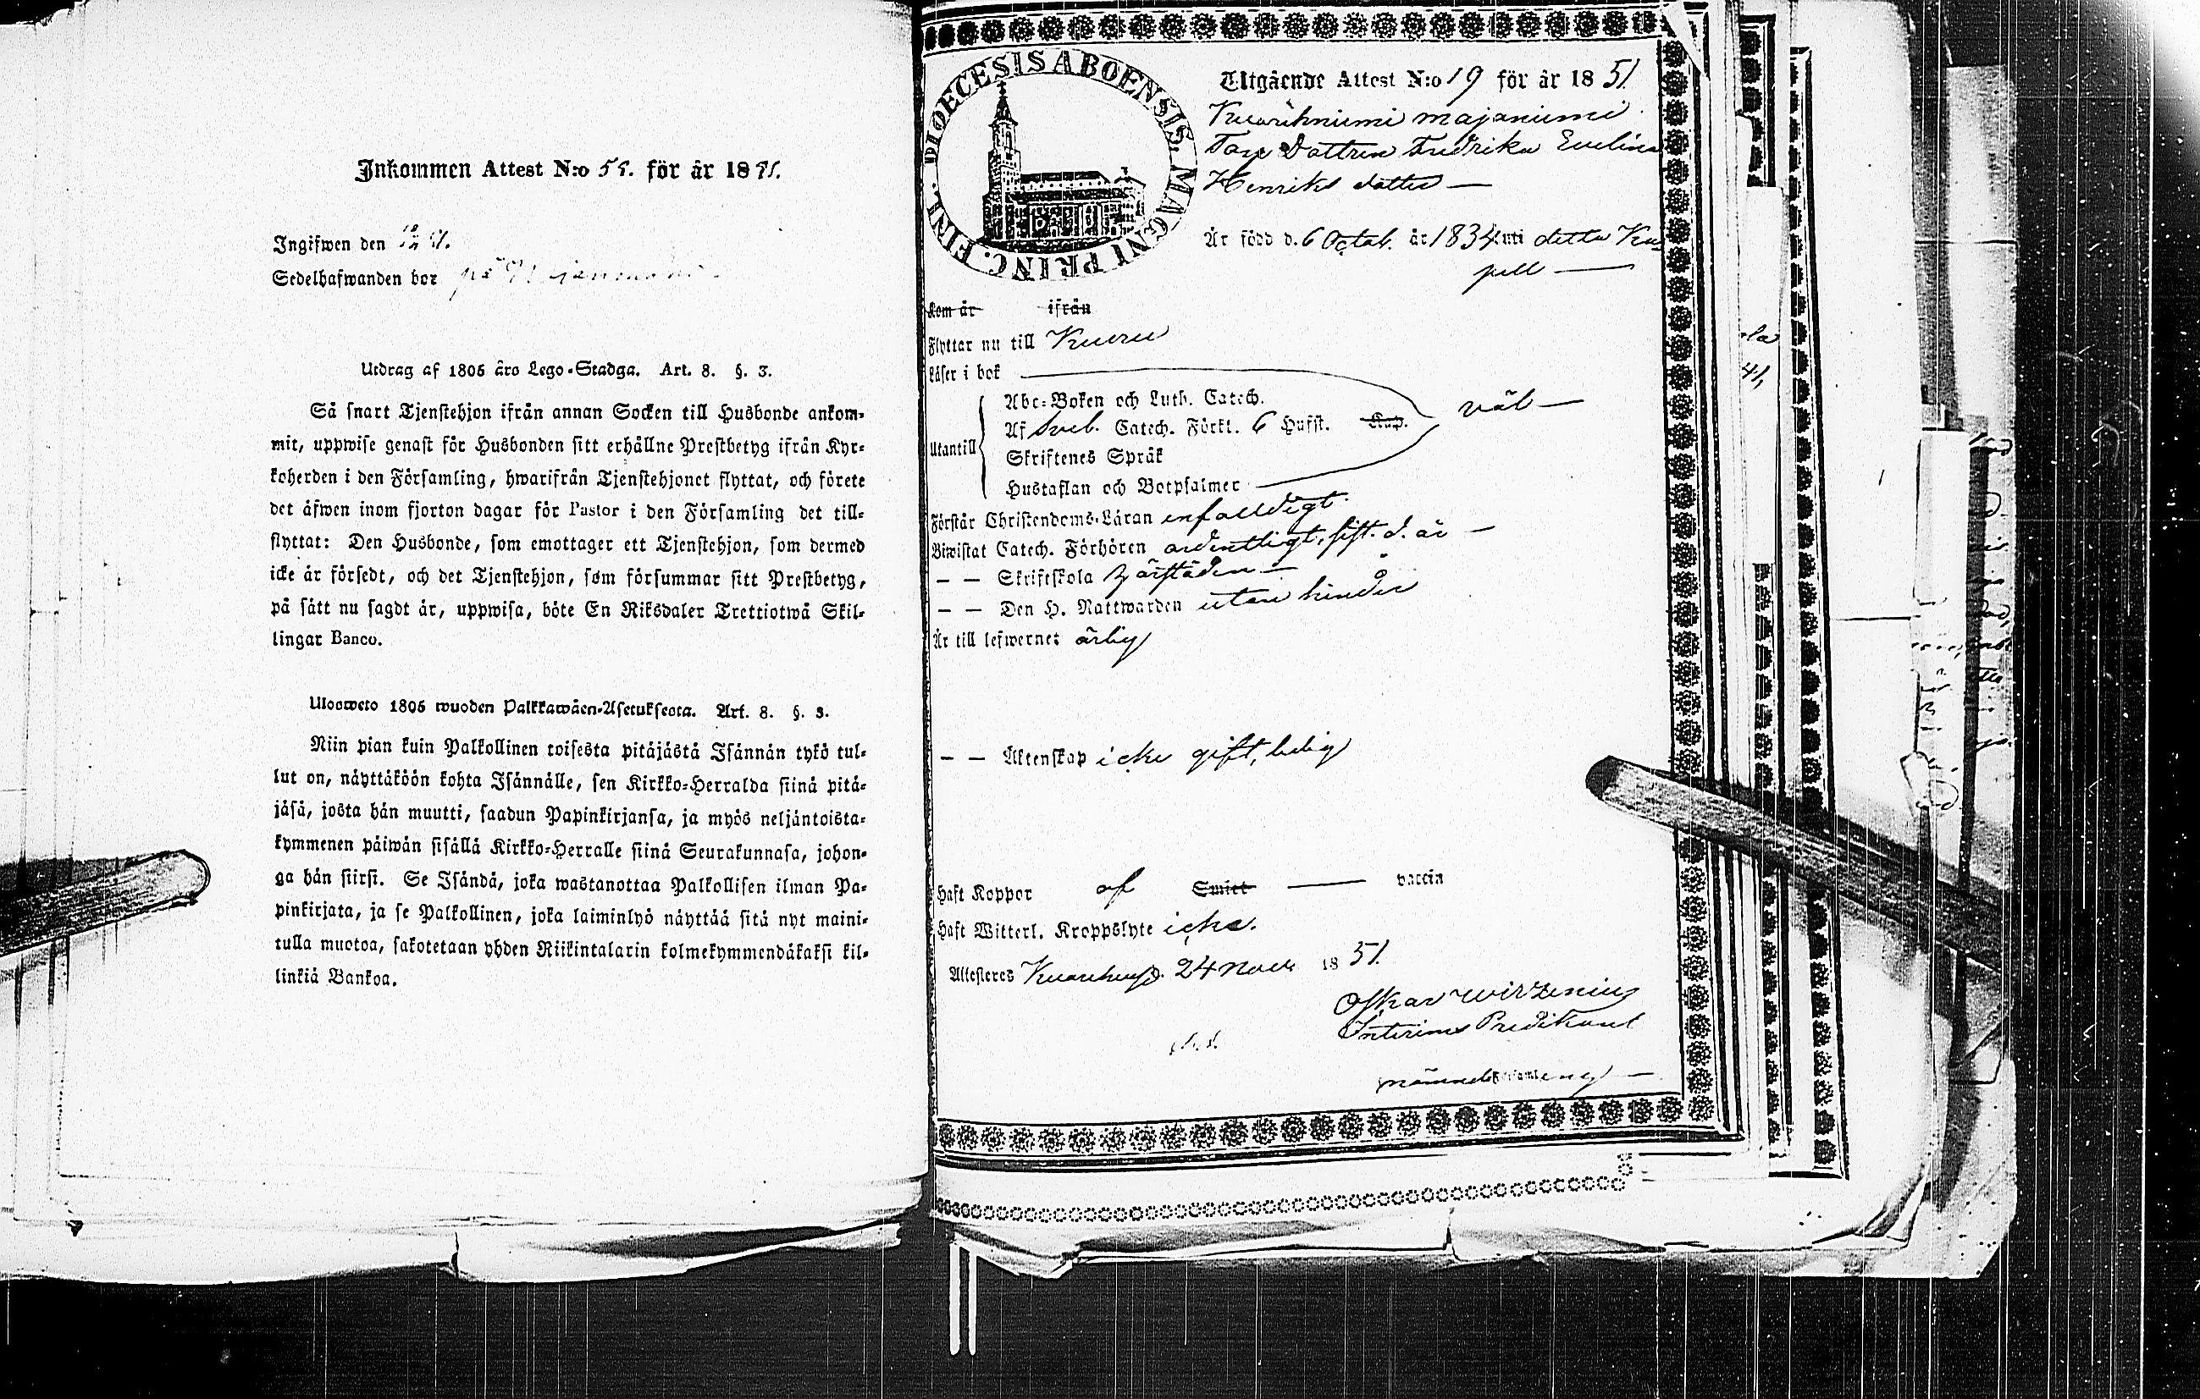 Inkommen Attest N:o 55. för år 1851.
Ingifwen den
Sedelhafwanden bor på
Utdrag af 1805 åro Lego-Stadga. Art. 8. §. 3.
Så snart Tjenstehjon ifrån annan Socken till Husbonde ankom-
mit, uppwise genast för Husbonden sitt erhållne Prestbetyg ifrån Kyr-
koherden i den Församling, hwarifrån Tjenstehjonet flyttat, och förete
det äfwen inom fjorton dagar för Pastor i den Församling det till-
flyttat: Den Husbonde, som emottager ett Tjenstehjon, som dermed
icke är försedt, och det Tjenstehjon, som försummar sitt Prestbetyg,
på sätt nu sagdt är, uppwisa, böte En Riksdaler Trettiotwå Skil-
lingar Banco.
Ulosweto 1805 wuoden Palkkawäen-Asetuksesta. Art. 8. §. 3.
Niin pian kuin Palkollinen toisesta pitäjästä Isännän tykö tul-
lut on, näyttäköön kohta Isännälle, sen Kirkko-Herralda siinä pitä-
jäsä, josta hän muutti, saadun Papinkirjansa, ja myös neljäntoista-
kymmenen päiwän sisällä Kirkko-Herralle siinä Seurakunnasa, johon-
ga hän siirsi. Se Isändä, joka wastanottaa Palkollisen ilman Pa-
pinkirjata, ja se Palkollinen, joka laiminlyö näyttää sitä nyt maini-
tulla muotoa, sakotetaan yhden Riikintalarin kolmekymmendäkaksi kil-
linkiä Bankoa.
DIOECESIS ABOENSIS. MAGNI PRINC. FINL.
Utgående Attest N:o 19 för år 1851.
majaniemi
Torp Dottren Fredrika Evelina
Henriks dotter —
Är född d. 6 Octob. år 1834 uti detta Ka
pell —
Kom år ifrån
Flyttar nu till Kuoru
Läser i bok
Utantill
Abc-Boken och Luth. Catech.
Af Sveb. Catech. Förkl. 6 Hufst. Kap. väl —
Skriftenes Språk
Hustaflan och Botpsalmer
Förstår Christendoms-Läran enfalldigt
Biwistat Catech. Förhören ordentligt, sist. d. år —
— — Skriftskola
— — Den H. Nattwarden utan hinder
Är till lefwernet ärlig
— — Äktenskap icke gift, ledig
Haft Koppor af Smitt — vaccin
Haft Witterl. Kroppslyte icke.
Attesteres 24 Nov. 1851.
Oskar Wirzenius
Interims Predikant